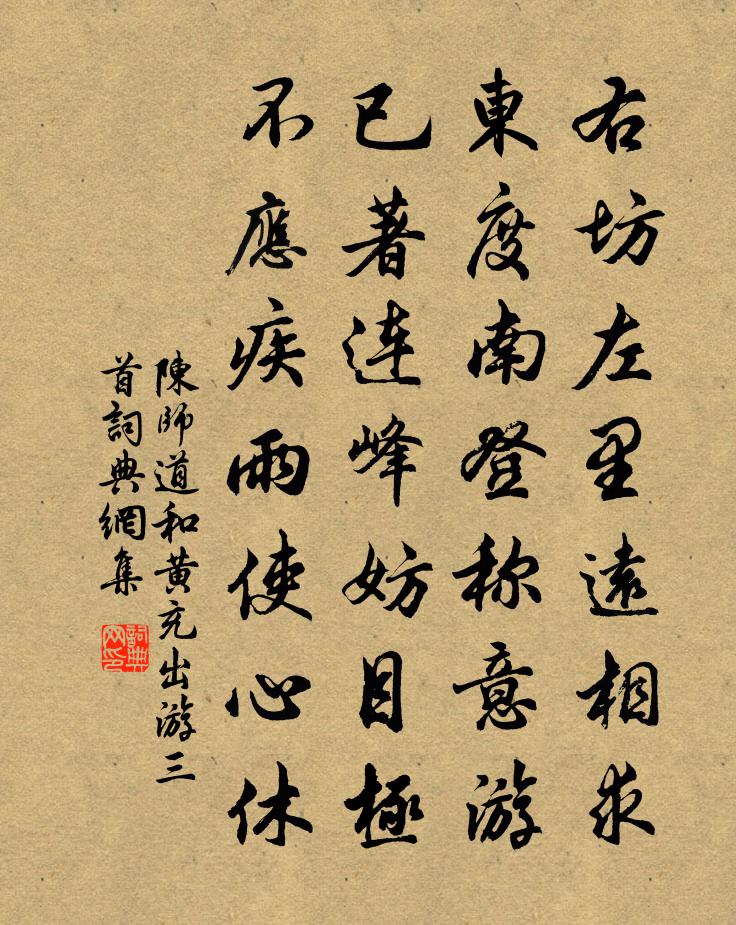 右坊左里遠相求
東度南登称意游
已著連峰妨目極
不應疾雨使心休
陳師道和黄充出游三
首詞典網集
詞典网印